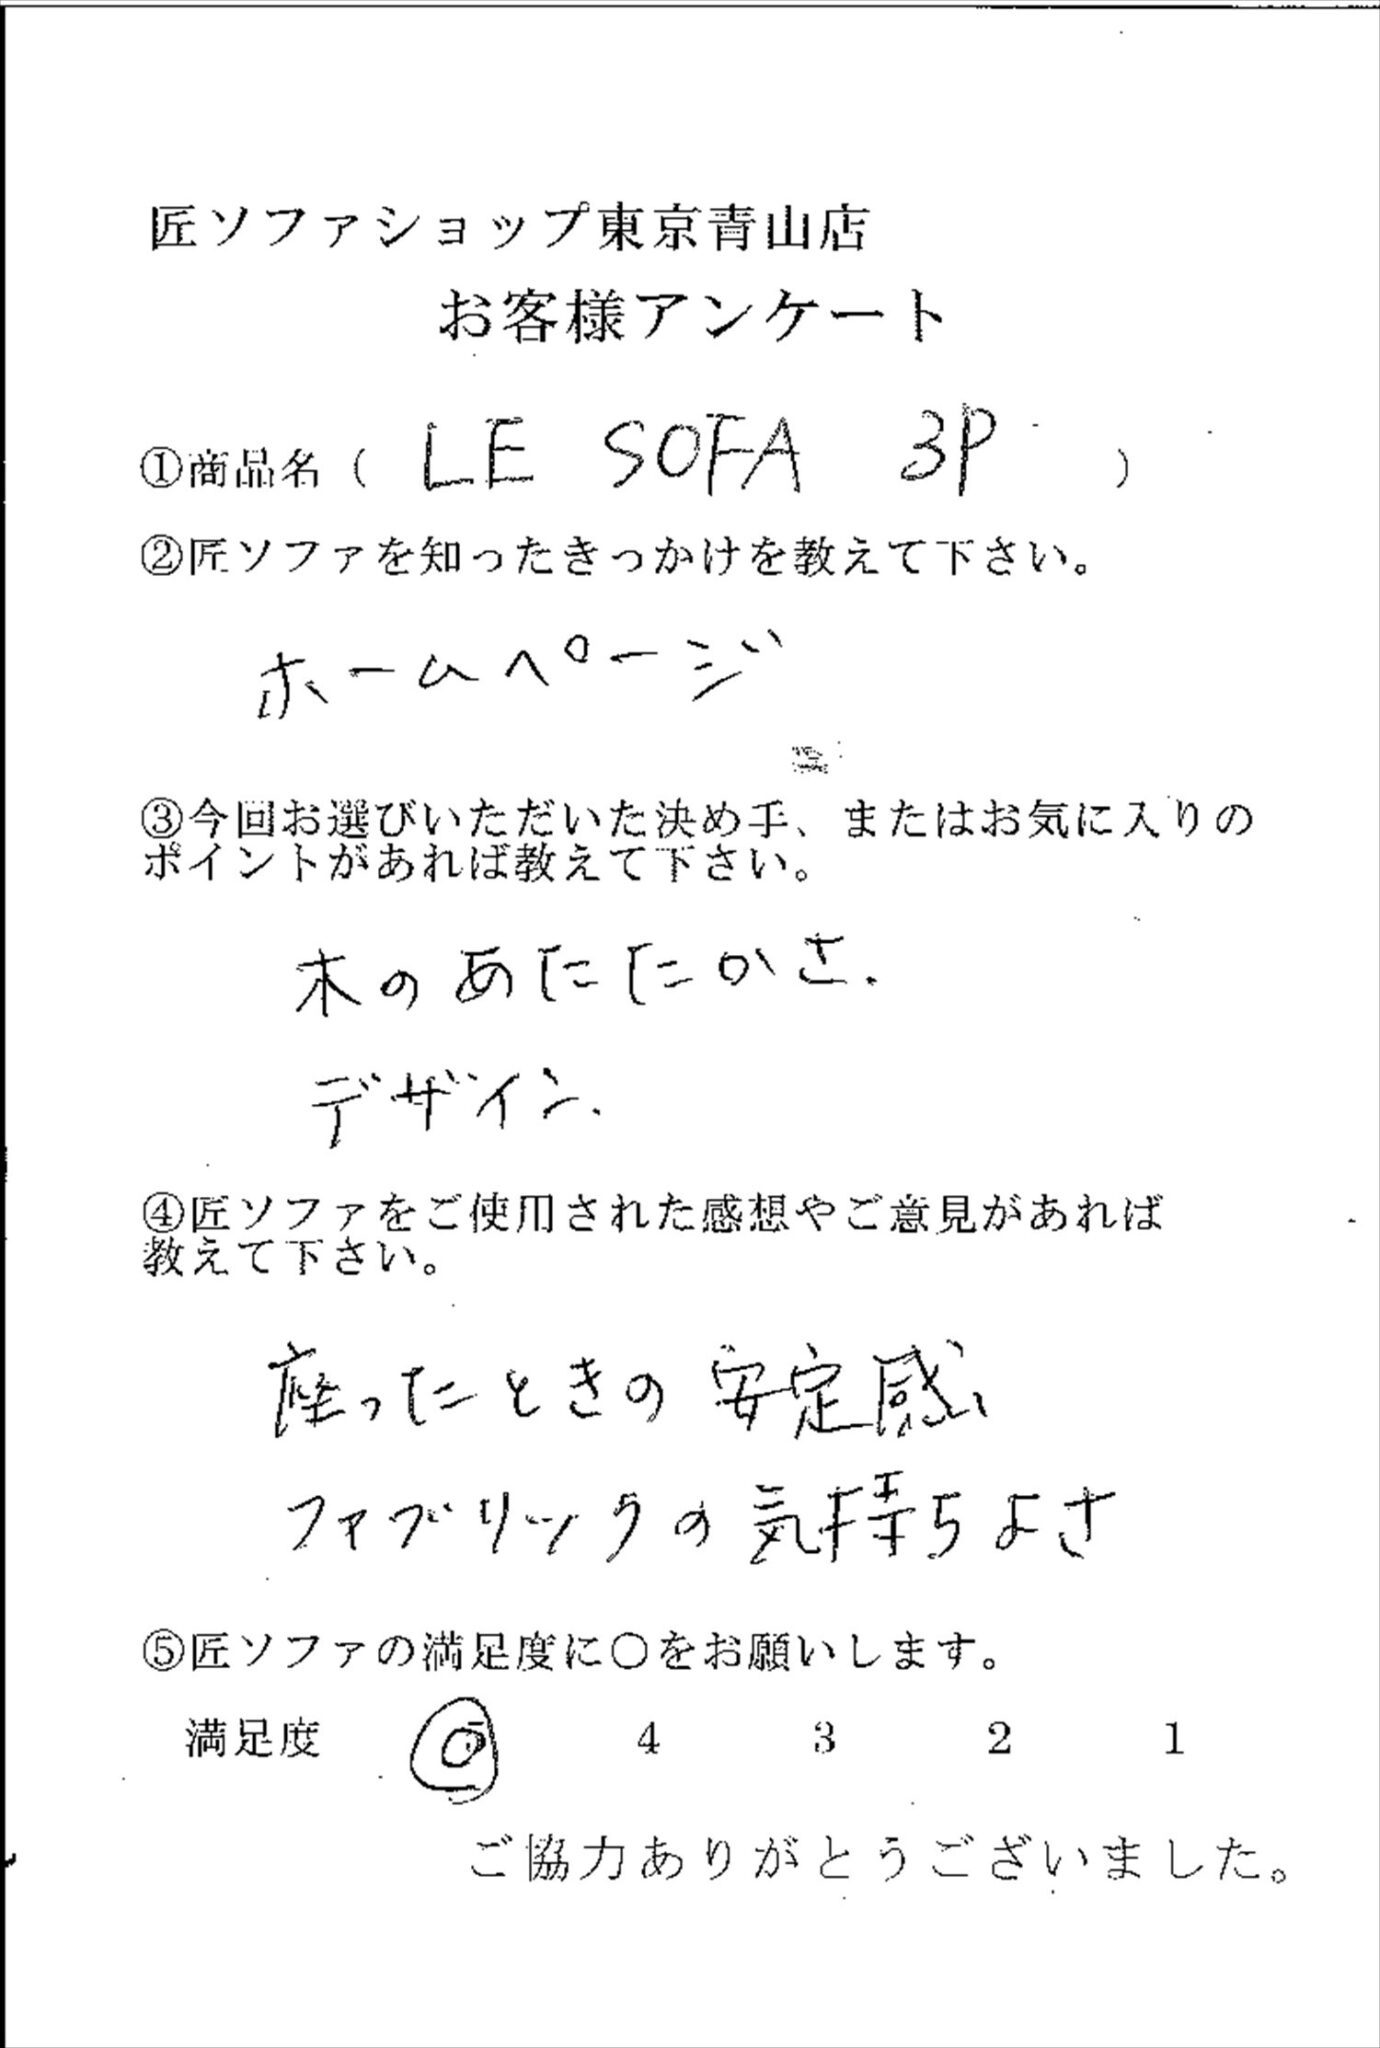 匠ソファショップ東京青山店
お客様アンケート
①商品名（ LE SOFA 3P ）
②匠ソファを知ったきっかけを教えて下さい。
ホームページ
③今回お選びいただいた決め手、またはお気に入りの
ポイントがあれば教えて下さい。
木のあたたかさ.
デザイン.
④匠ソファをご使用された感想やご意見があれば
教えて下さい。
座ったときの安定感
ファブリックの気持ちよさ
⑤匠ソファの満足度に○をお願いします。
満足度 5 4 3 2 1
ご協力ありがとうございました。